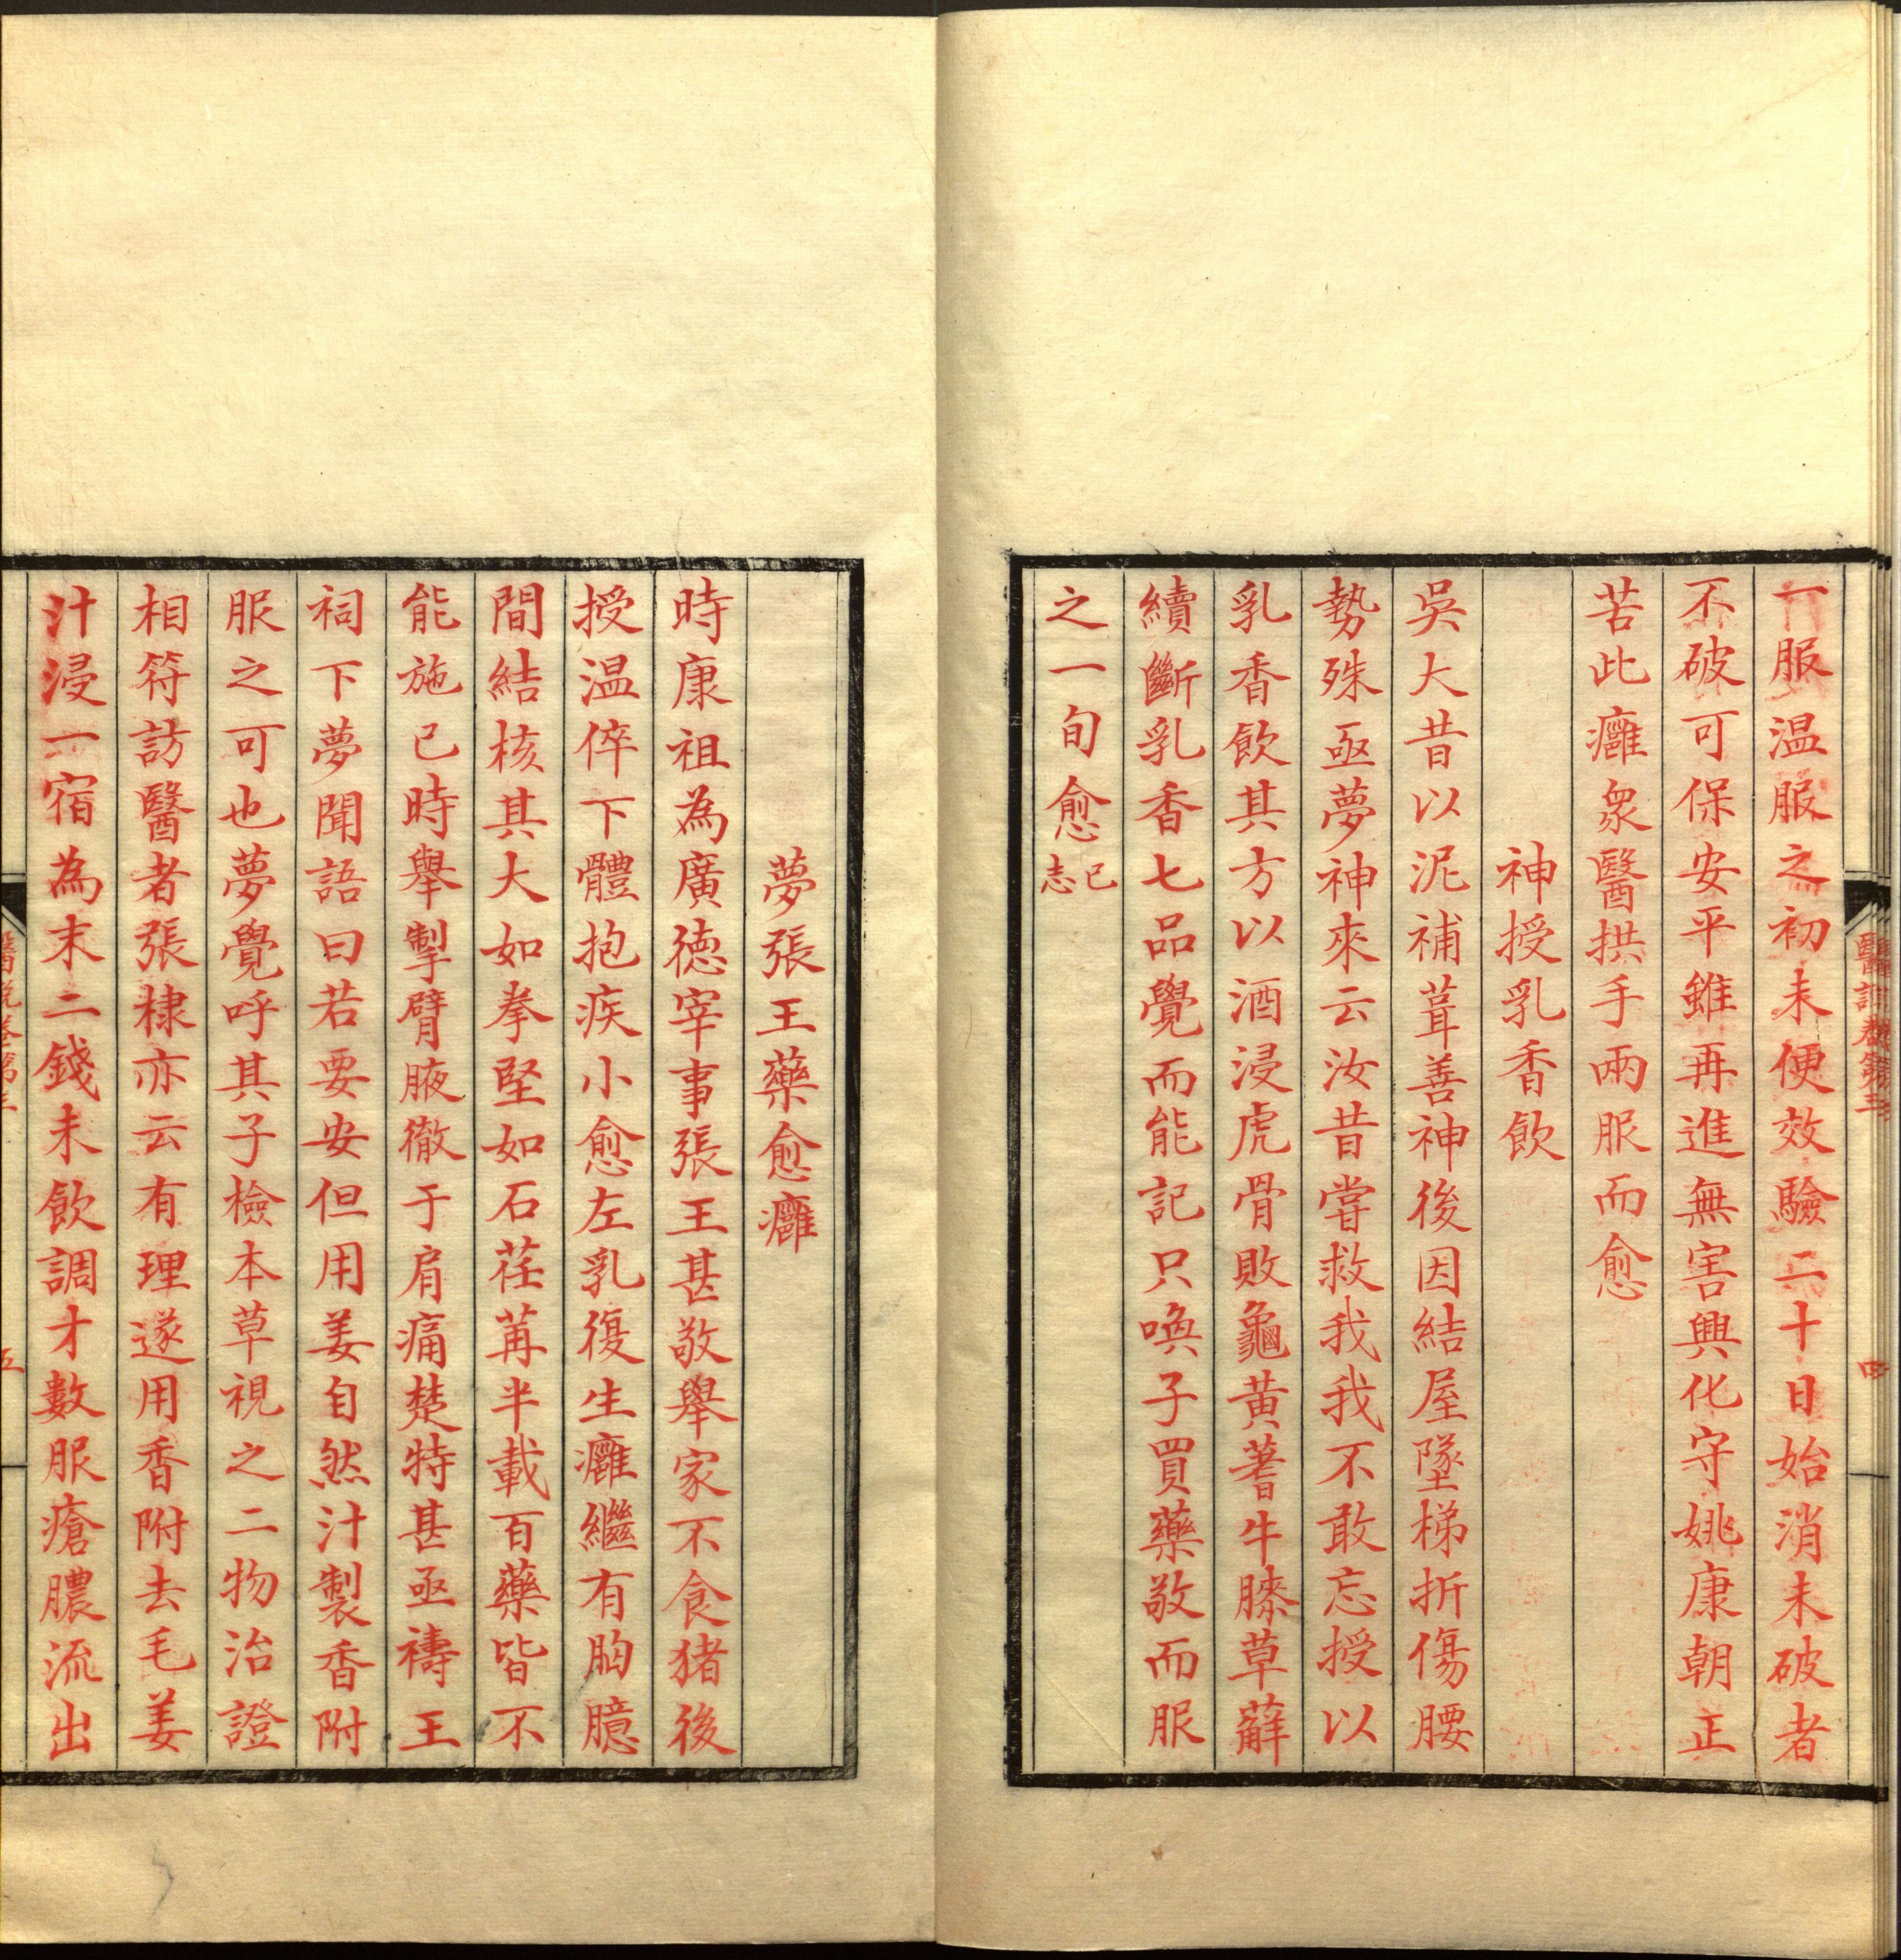 一服温服之初未便效驗二十日始消未破者
不破可保安平雖再進無害興化守姚康朝正
苦此癰衆醫拱手兩服而愈
神授乳香飲
吳大昔以泥補葺善神後因結屋墜梯折傷腰
勢殊亟夢神來云汝昔嘗救我我不敢忘授以
乳香飲其方以酒浸虎骨敗龜黃蓍牛膝草薢
續斷乳香七品覺而能記只喚子買藥敬而服
之一旬愈已志
醫說卷第三
四
夢張王藥愈癰
時康祖為廣德宰事張王甚敬舉家不食猪後
授温倅下體抱疾小愈左乳復生癰繼有胸臆
間結核其大如拳堅如石荏苒半載百藥皆不
能施已時舉掣臂腋徹于肩痛楚特甚亟禱王
祠下夢聞語曰若要安但用姜自然汁製香附
服之可也夢覺呼其子檢本草視之二物治證
相符訪醫者張隸亦云有理遂用香附去毛姜
汁浸一宿為末二錢米飲調才數服瘡膿流出
醫說卷第三
五